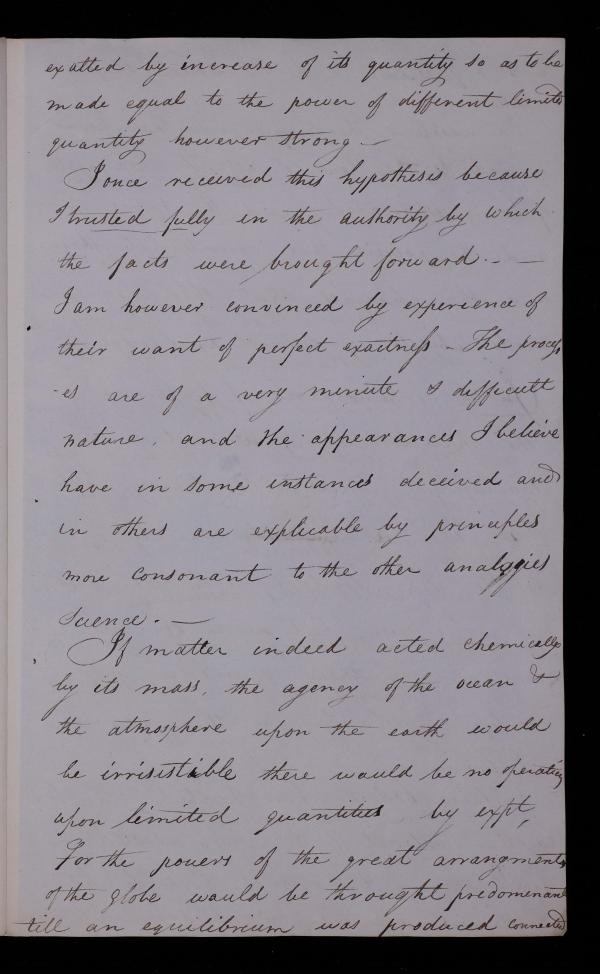 exalted by increase of its quantity so as to be
made equal to the power of different limited
quantity however strong. —
I once received this hypothesis because
I trusted fully in the authority by which
the facts were brought forward. - —
I am however convinced by experience of
their want of perfect exactness - The process
-es are of a very minute & difficult
nature. and the appearances I believe
have in some instances deceived and
in others are explicable by principles
more consonant to the other analogies
science. —
If matter indeed acted chemically
by its mass, the agency of the ocean &
the atmosphere upon the earth would
be irrisistible there would be no operating
upon limited quantities by expt,
For the powers of the great arrangments
of the globe would be throught predomenant
till an equilibrium was produced connected